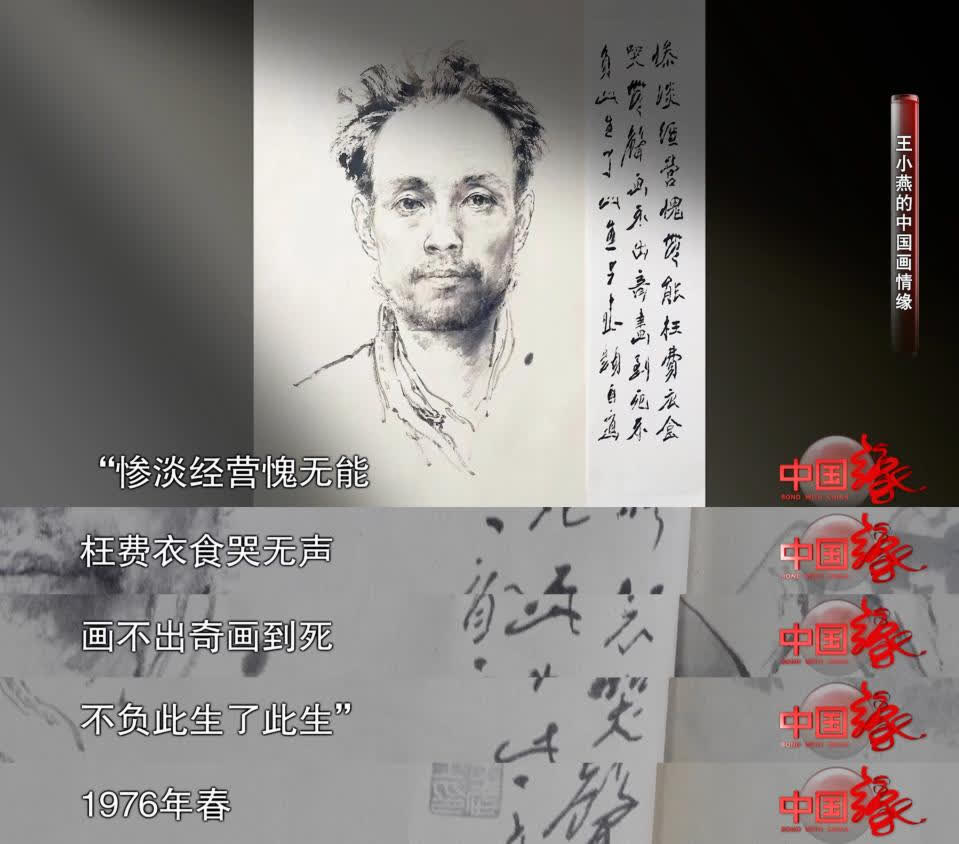 惨淡经营愧無能枉費衣食
哭無聲画不出奇画到死不
負此生了此生
王小燕的中国画情缘
“惨淡经营愧无能
中国缘
BOND WITH CHINA
枉费衣食哭无声
中国缘
BOND WITH CHINA
画不出奇画到死
中国缘
BOND WITH CHINA
不负此生了此生”
中国缘
BOND WITH CHINA
1976年春
中国缘
BOND WITH CHINA